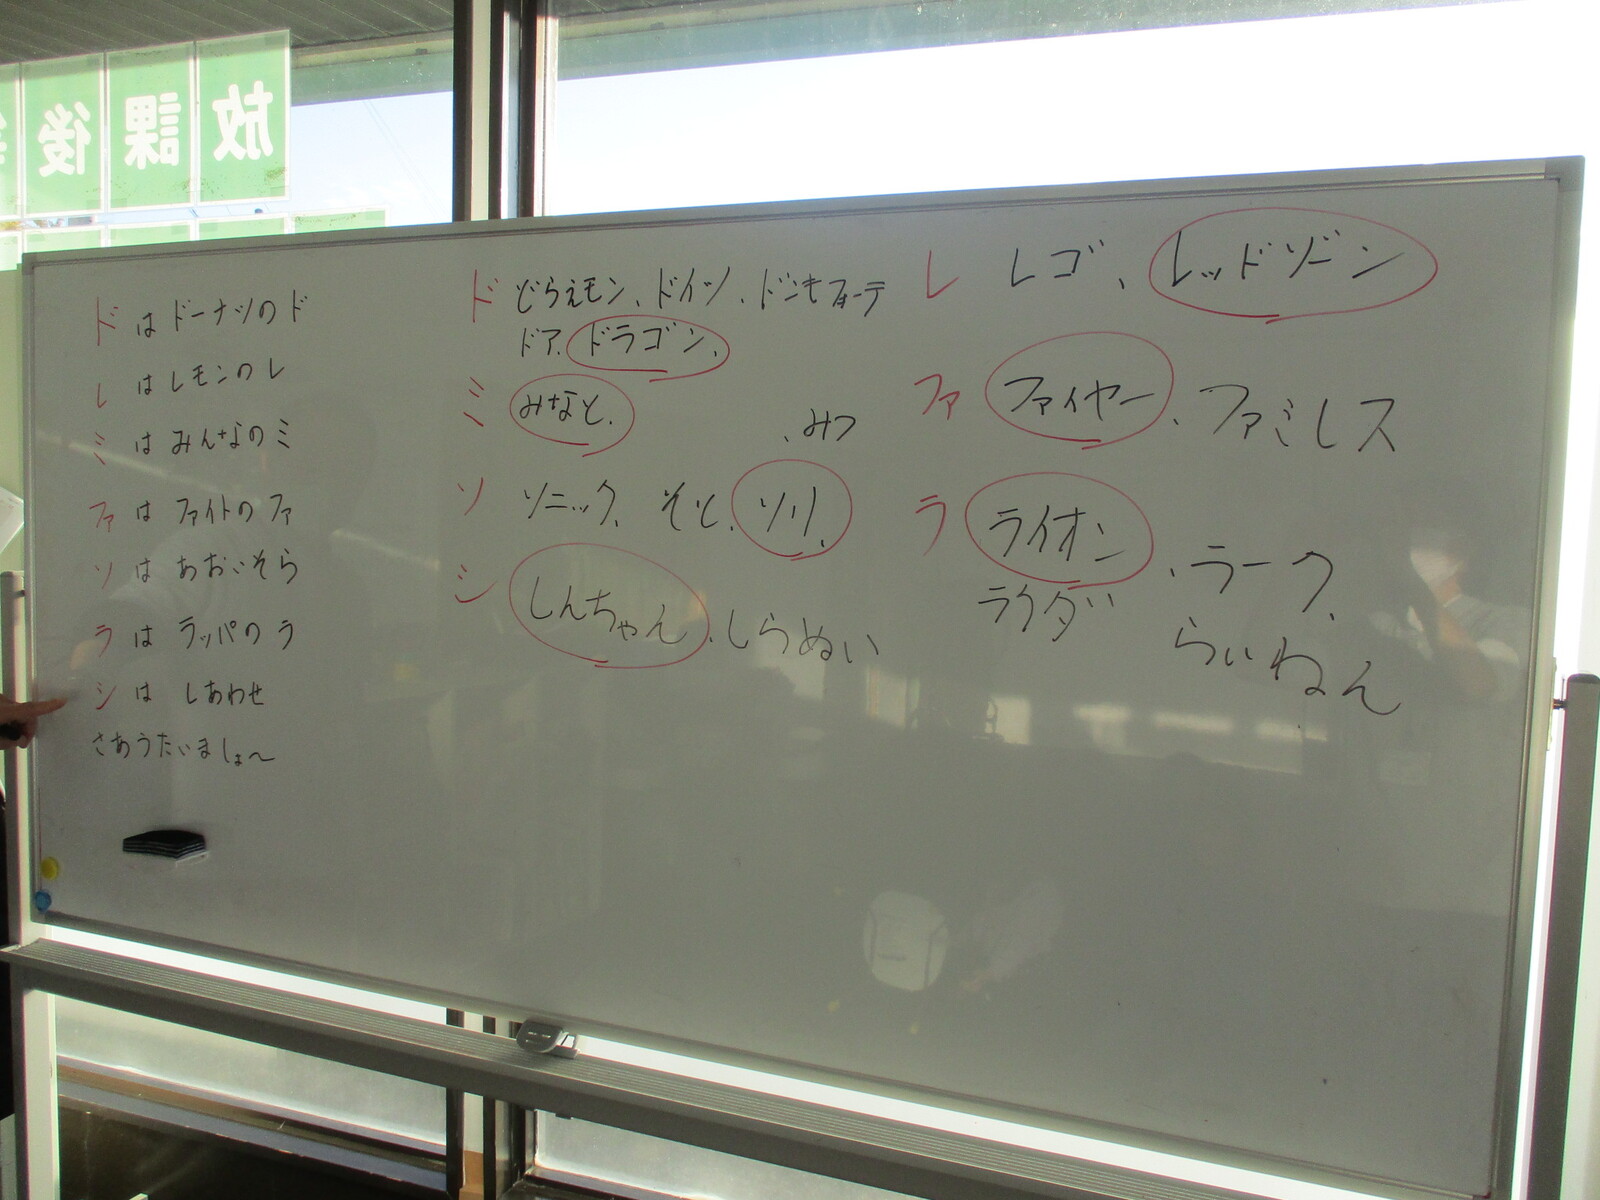 放課後
ド は ドーナツのド
レ は レモンのレ
ミ は みんなのミ
ファ は ファイトのファ
ソ は あおいそら
ラ は ラッパのラ
シ は しあわせ
さあうたいましょ〜
ド どらえモン、ドイツ、ドンキフォーテ
ドア、ドラゴン、
ミ みなと、
、みつ
ソ ソニック、そと、ソリ、
シ しんちゃん、しらぬい
レ レゴ、レッドゾーン
ファ ファイヤー、ファミレス
ラ ライオン、ラーク、
ラクダ
らいねん